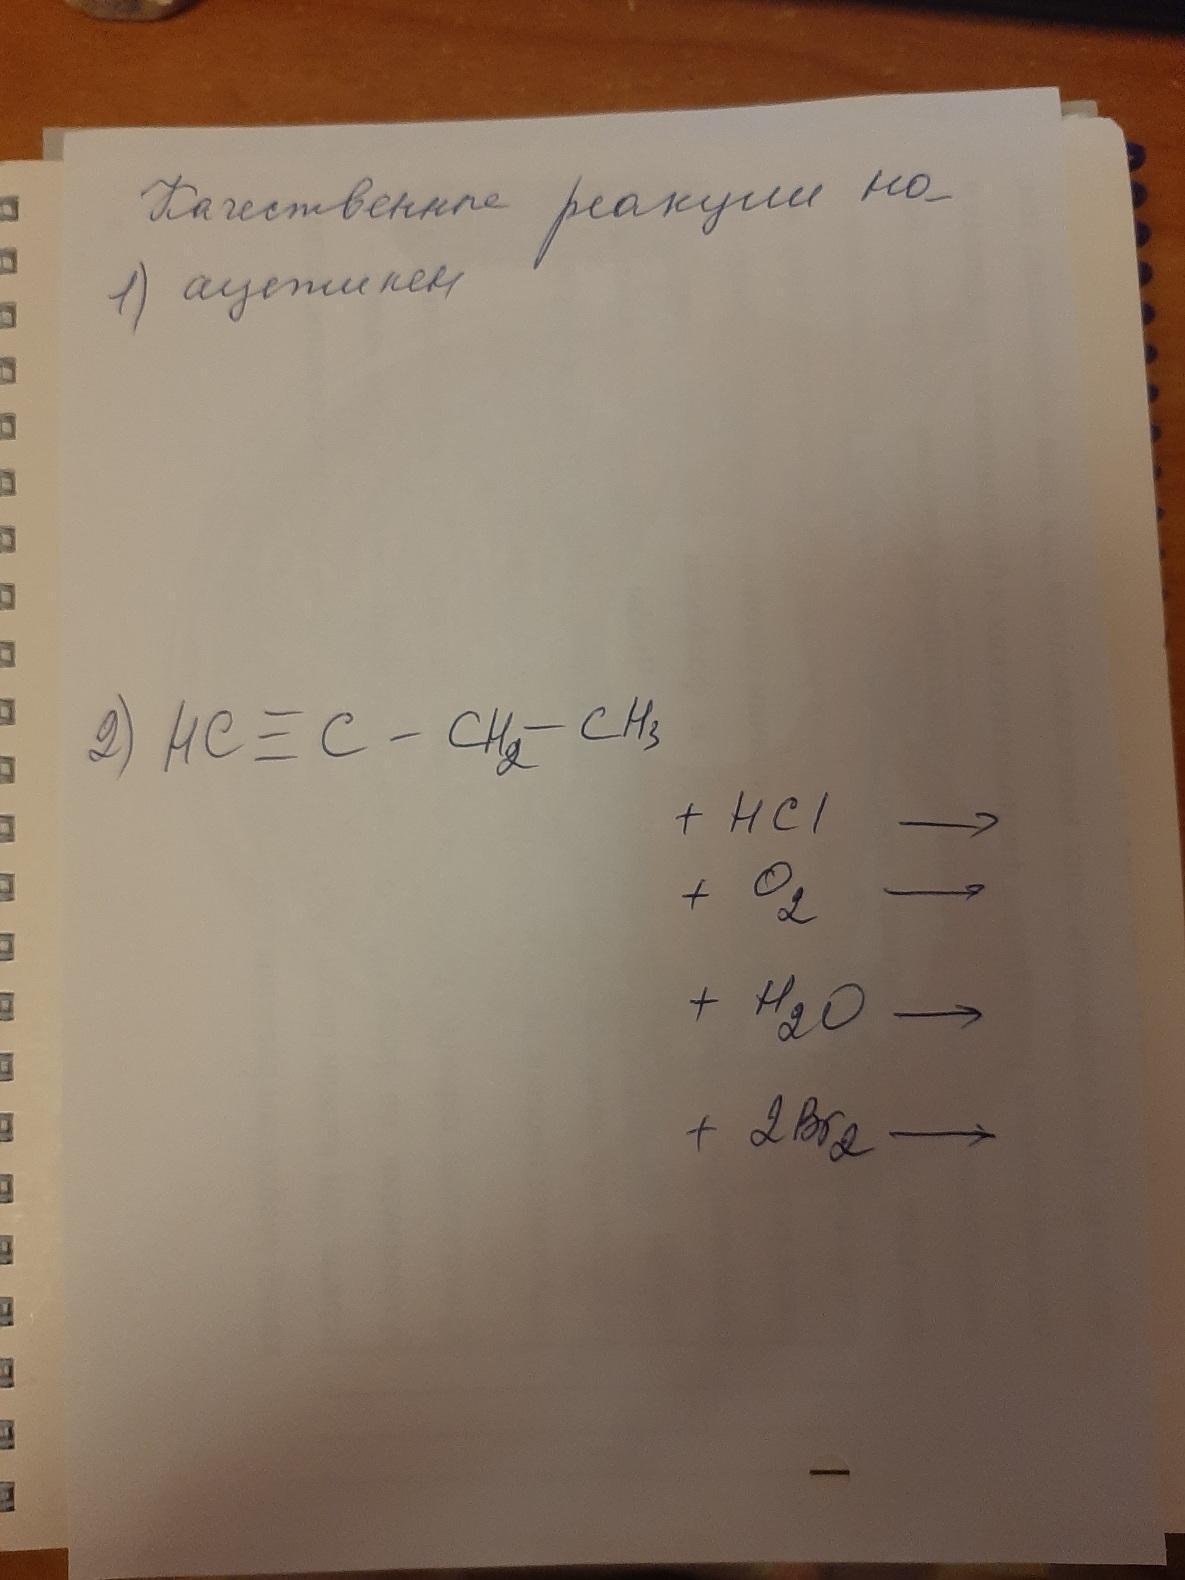 Качественные реакции на
1) ацетилен
2) HC ≡ C - CH₂ - CH₃
+ HCl →
+ O₂ →
+ H₂O →
+ 2Br₂ →